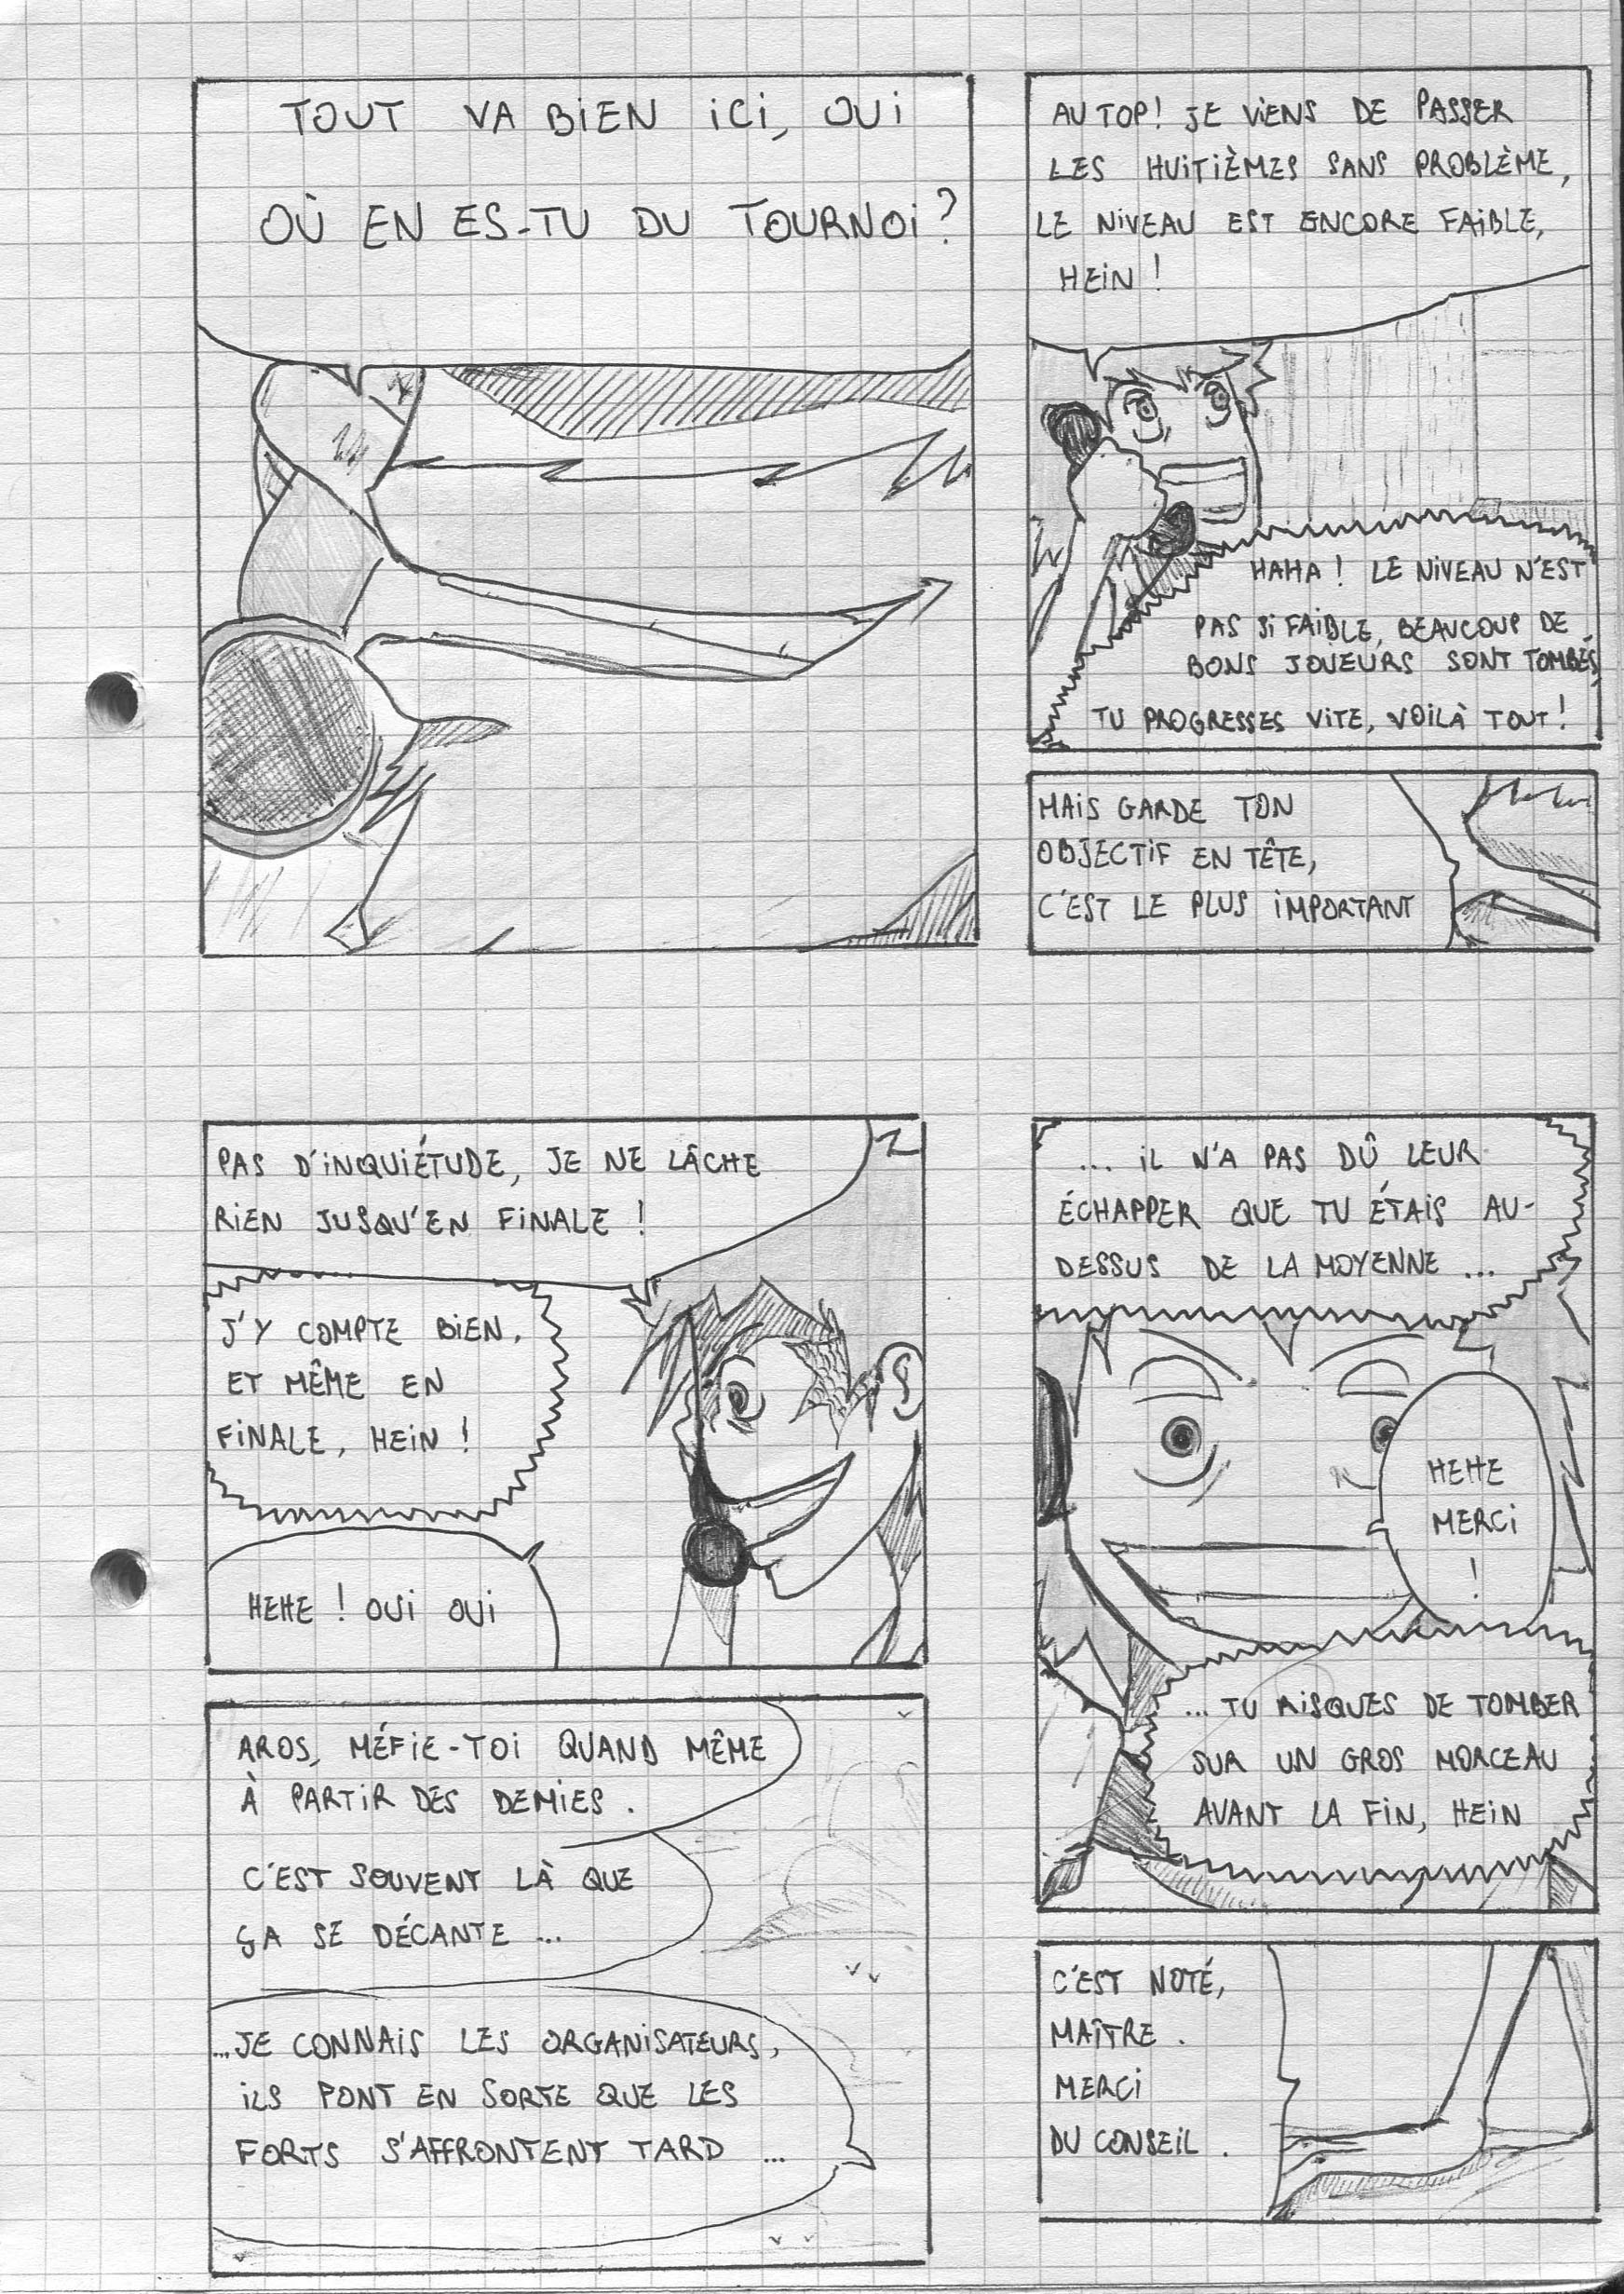 TOUT VA BIEN ICI, OUI
OÙ EN ES-TU DU TOURNOI?
AU TOP! JE VIENS DE PASSER
LES HUITIÈMES SANS PROBLÈME,
LE NIVEAU EST ENCORE FAIBLE,
HEIN !
HAHA ! LE NIVEAU N'EST
PAS SI FAIBLE, BEAUCOUP DE
BONS JOUEURS SONT TOMBÉS,
TU PROGRESSES VITE, VOILÀ TOUT !
MAIS GARDE TON
OBJECTIF EN TÊTE,
C'EST LE PLUS IMPORTANT
PAS D'INQUIÉTUDE, JE NE LÂCHE
RIEN JUSQU'EN FINALE !
J'Y COMPTE BIEN,
ET MÊME EN
FINALE, HEIN !
HEHE ! OUI OUI
AROS, MÉFIE-TOI QUAND MÊME
À PARTIR DES DEMIES .
C'EST SOUVENT LÀ QUE
ÇA SE DÉCANTE ...
...JE CONNAIS LES ORGANISATEURS,
ILS FONT EN SORTE QUE LES
FORTS S'AFFRONTENT TARD ...
... IL N'A PAS DÛ LEUR
ÉCHAPPER QUE TU ÉTAIS AU-
DESSUS DE LA MOYENNE ...
HEHE
MERCI
!
... TU RISQUES DE TOMBER
SUR UN GROS MORCEAU
AVANT LA FIN, HEIN
C'EST NOTÉ,
MAÎTRE .
MERCI
DU CONSEIL .